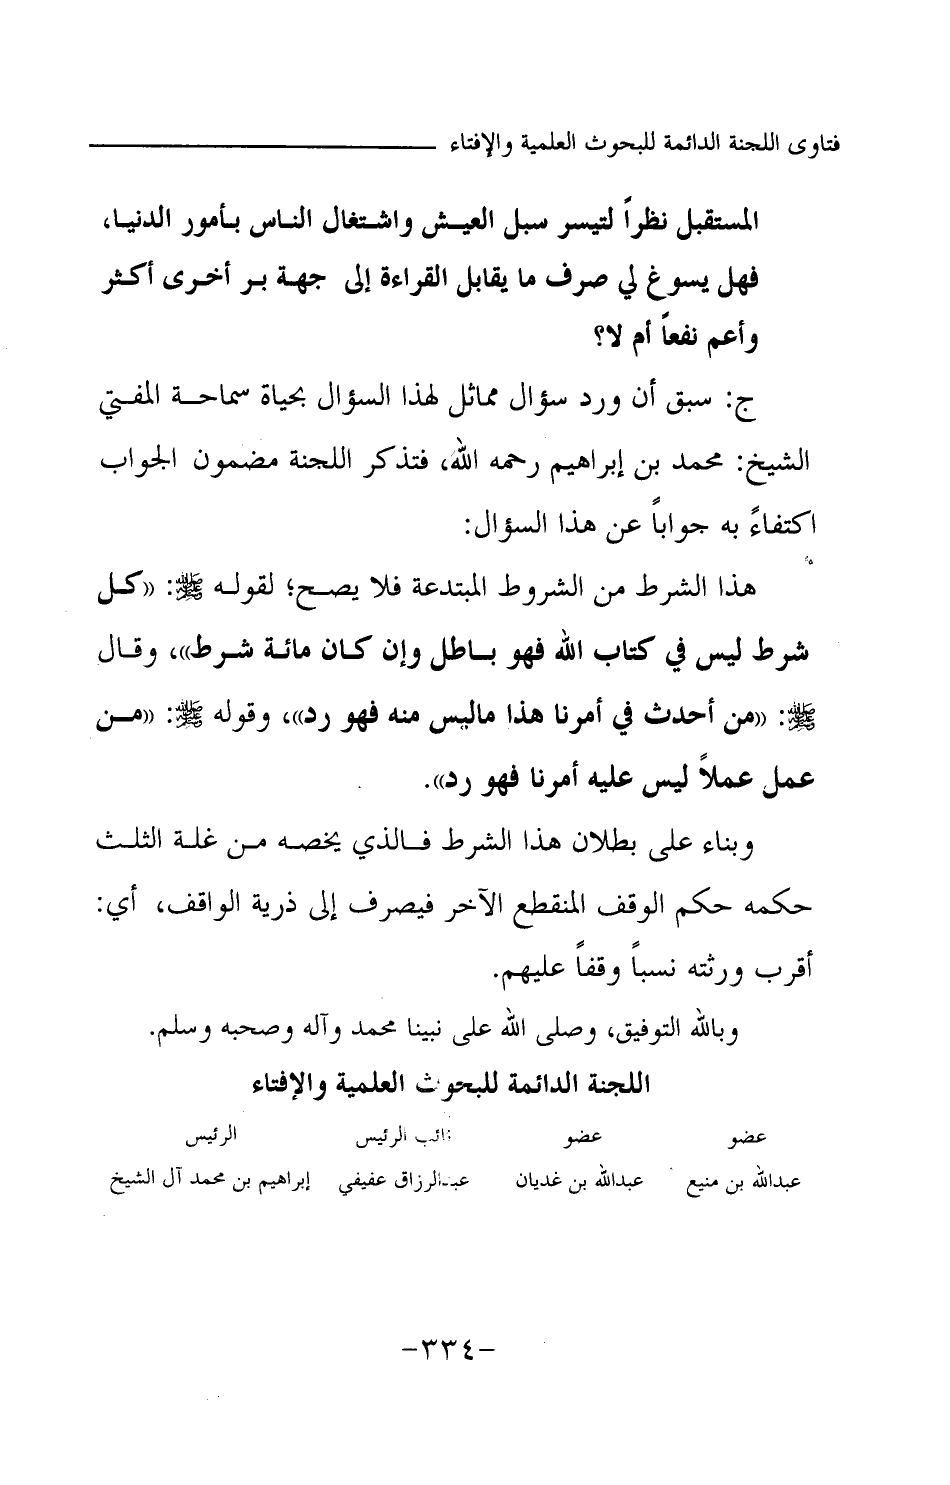 فتاوى اللجنة الدائمة للبحوث العلمية والإفتاء
المستقبل نظراً لتيسر سبل العيش واشتغال الناس بأمور الدنيا،
فهل يسوغ لي صرف ما يقابل القراءة إلى جهة بر أخرى أكثر
وأعم نفعاً أم لا؟
ج: سبق أن ورد سؤال مماثل لهذا السؤال بحياة سماحة المفتي
الشيخ: محمد بن إبراهيم رحمه الله، فتذكر اللجنة مضمون الجواب
اكتفاءً به جواباً عن هذا السؤال:
هذا الشرط من الشروط المبتدعة فلا يصح؛ لقوله ﷺ: «كل
شرط ليس في كتاب الله فهو باطل وإن كان مائة شرط»، وقال
ﷺ: «من أحدث في أمرنا هذا ماليس منه فهو رد»، وقوله ﷺ: «من
عمل عملاً ليس عليه أمرنا فهو رد».
وبناء على بطلان هذا الشرط فالذي يخصه من غلة الثلث
حكمه حكم الوقف المنقطع الآخر فيصرف إلى ذرية الواقف، أي:
أقرب ورثته نسباً وقفاً عليهم.
وبالله التوفيق، وصلى الله على نبينا محمد وآله وصحبه وسلم.
اللجنة الدائمة للبحوث العلمية والإفتاء
عضو عضو نائب الرئيس الرئيس
عبدالله بن منيع عبدالله بن غديان عبدالرزاق عفيفي إبراهيم بن محمد آل الشيخ
-٣٣٤-